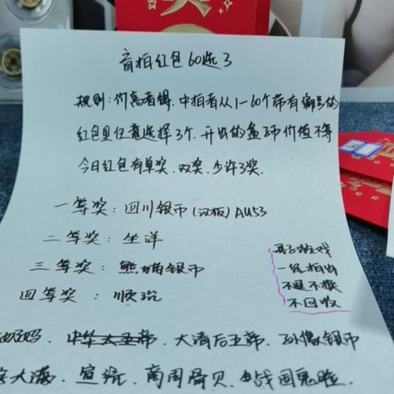 盲拍红包60选3
规则:价高者得,中拍者从1-60个带有编号的
红包里任意选择3个,开出的盒子币价值不等
今日红包有单奖,双奖,少许3奖.
一等奖:四川银币(汉板)AU53
二等奖:坐洋
三等奖:熊猫银币
四等奖:顺治
再子游戏
一经拍出
不退不换
不回收
大清后五帝、孙像银币
大满、宣统、商周贝、战国鬼脸.